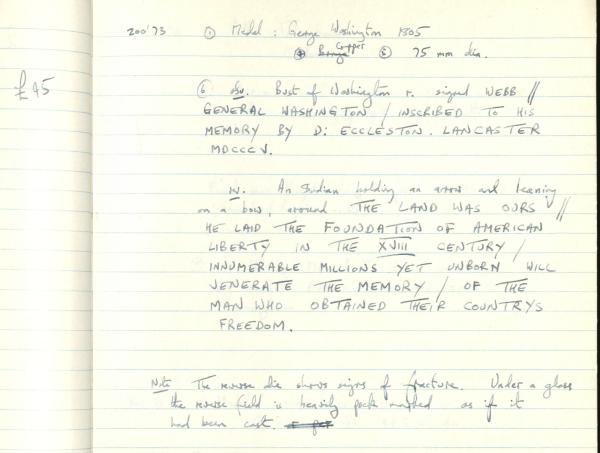 200'73 ① Medal : George Washington 1805
④ Bronze Copper ⑤ 75 mm dia.
£45
⑥ obv. Bust of Washington r. signed WEBB //
GENERAL WASHINGTON / INSCRIBED TO HIS
MEMORY BY D: ECCLESTON. LANCASTER
MDCCCV.
rv. An Indian holding an arrow and leaning
on a bow, around THE LAND WAS OURS //
HE LAID THE FOUNDATION OF AMERICAN
LIBERTY IN THE XVIII CENTURY /
INNUMERABLE MILLIONS YET UNBORN WILL
VENERATE THE MEMORY / OF THE
MAN WHO OBTAINED THEIR COUNTRYS
FREEDOM.
Note The reverse die shows signs of fracture. Under a glass
the reverse field is heavily pock marked as if it
had been cast.